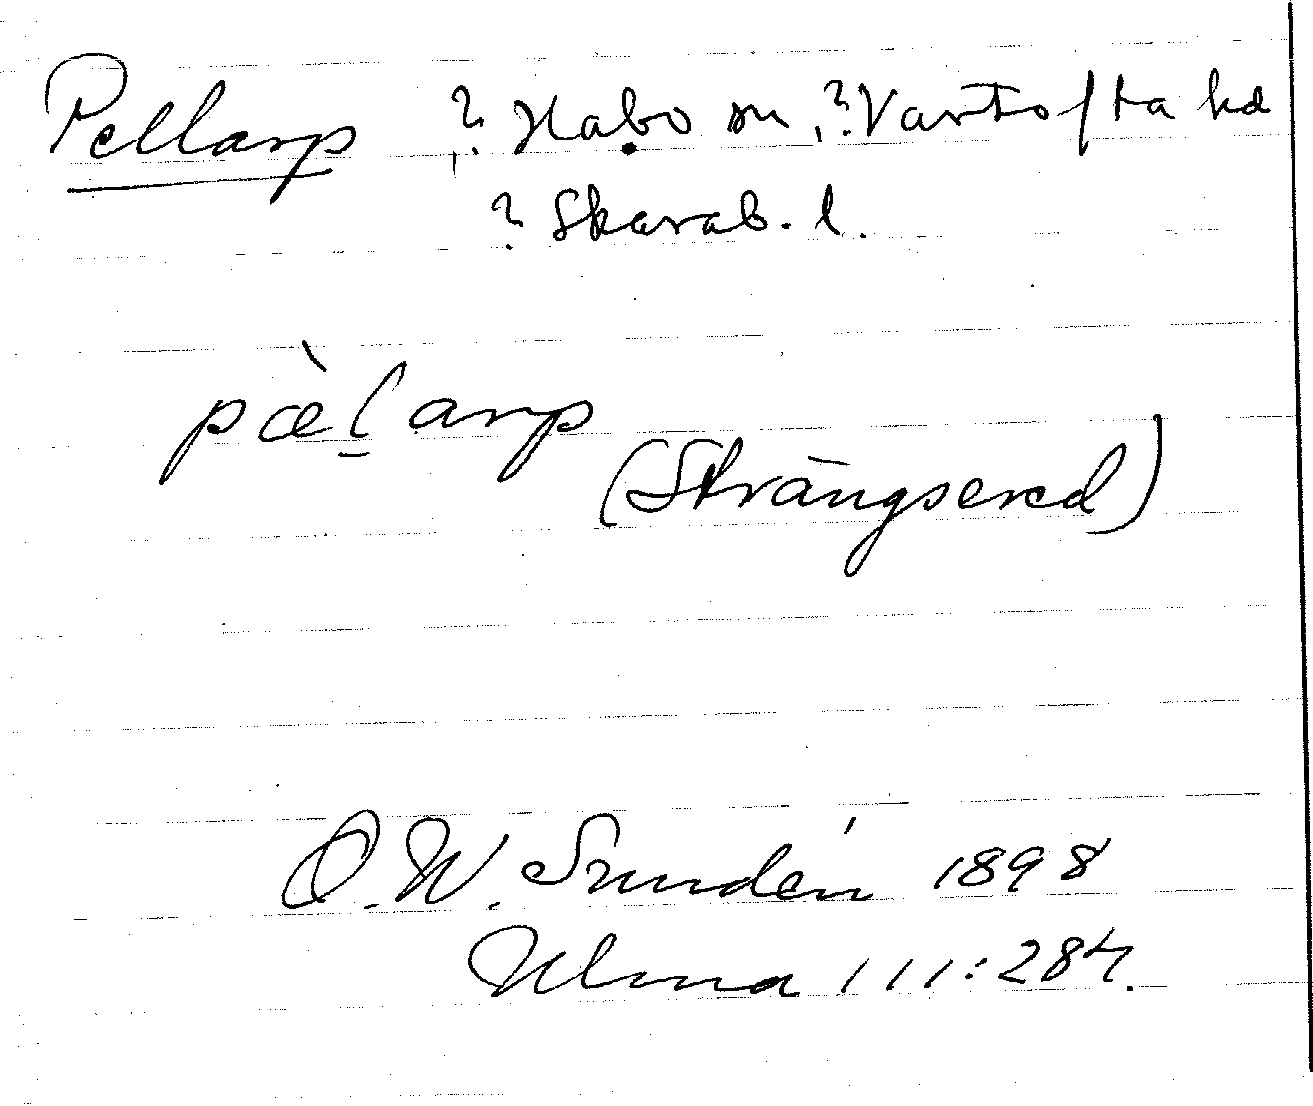 Pellarp ? Habo sn, ?Vartofta hd
? Skarab. l.
pæ̀l̠arp
(Strängsered)
O.W. Sundén 1898
Ulma 111:284.